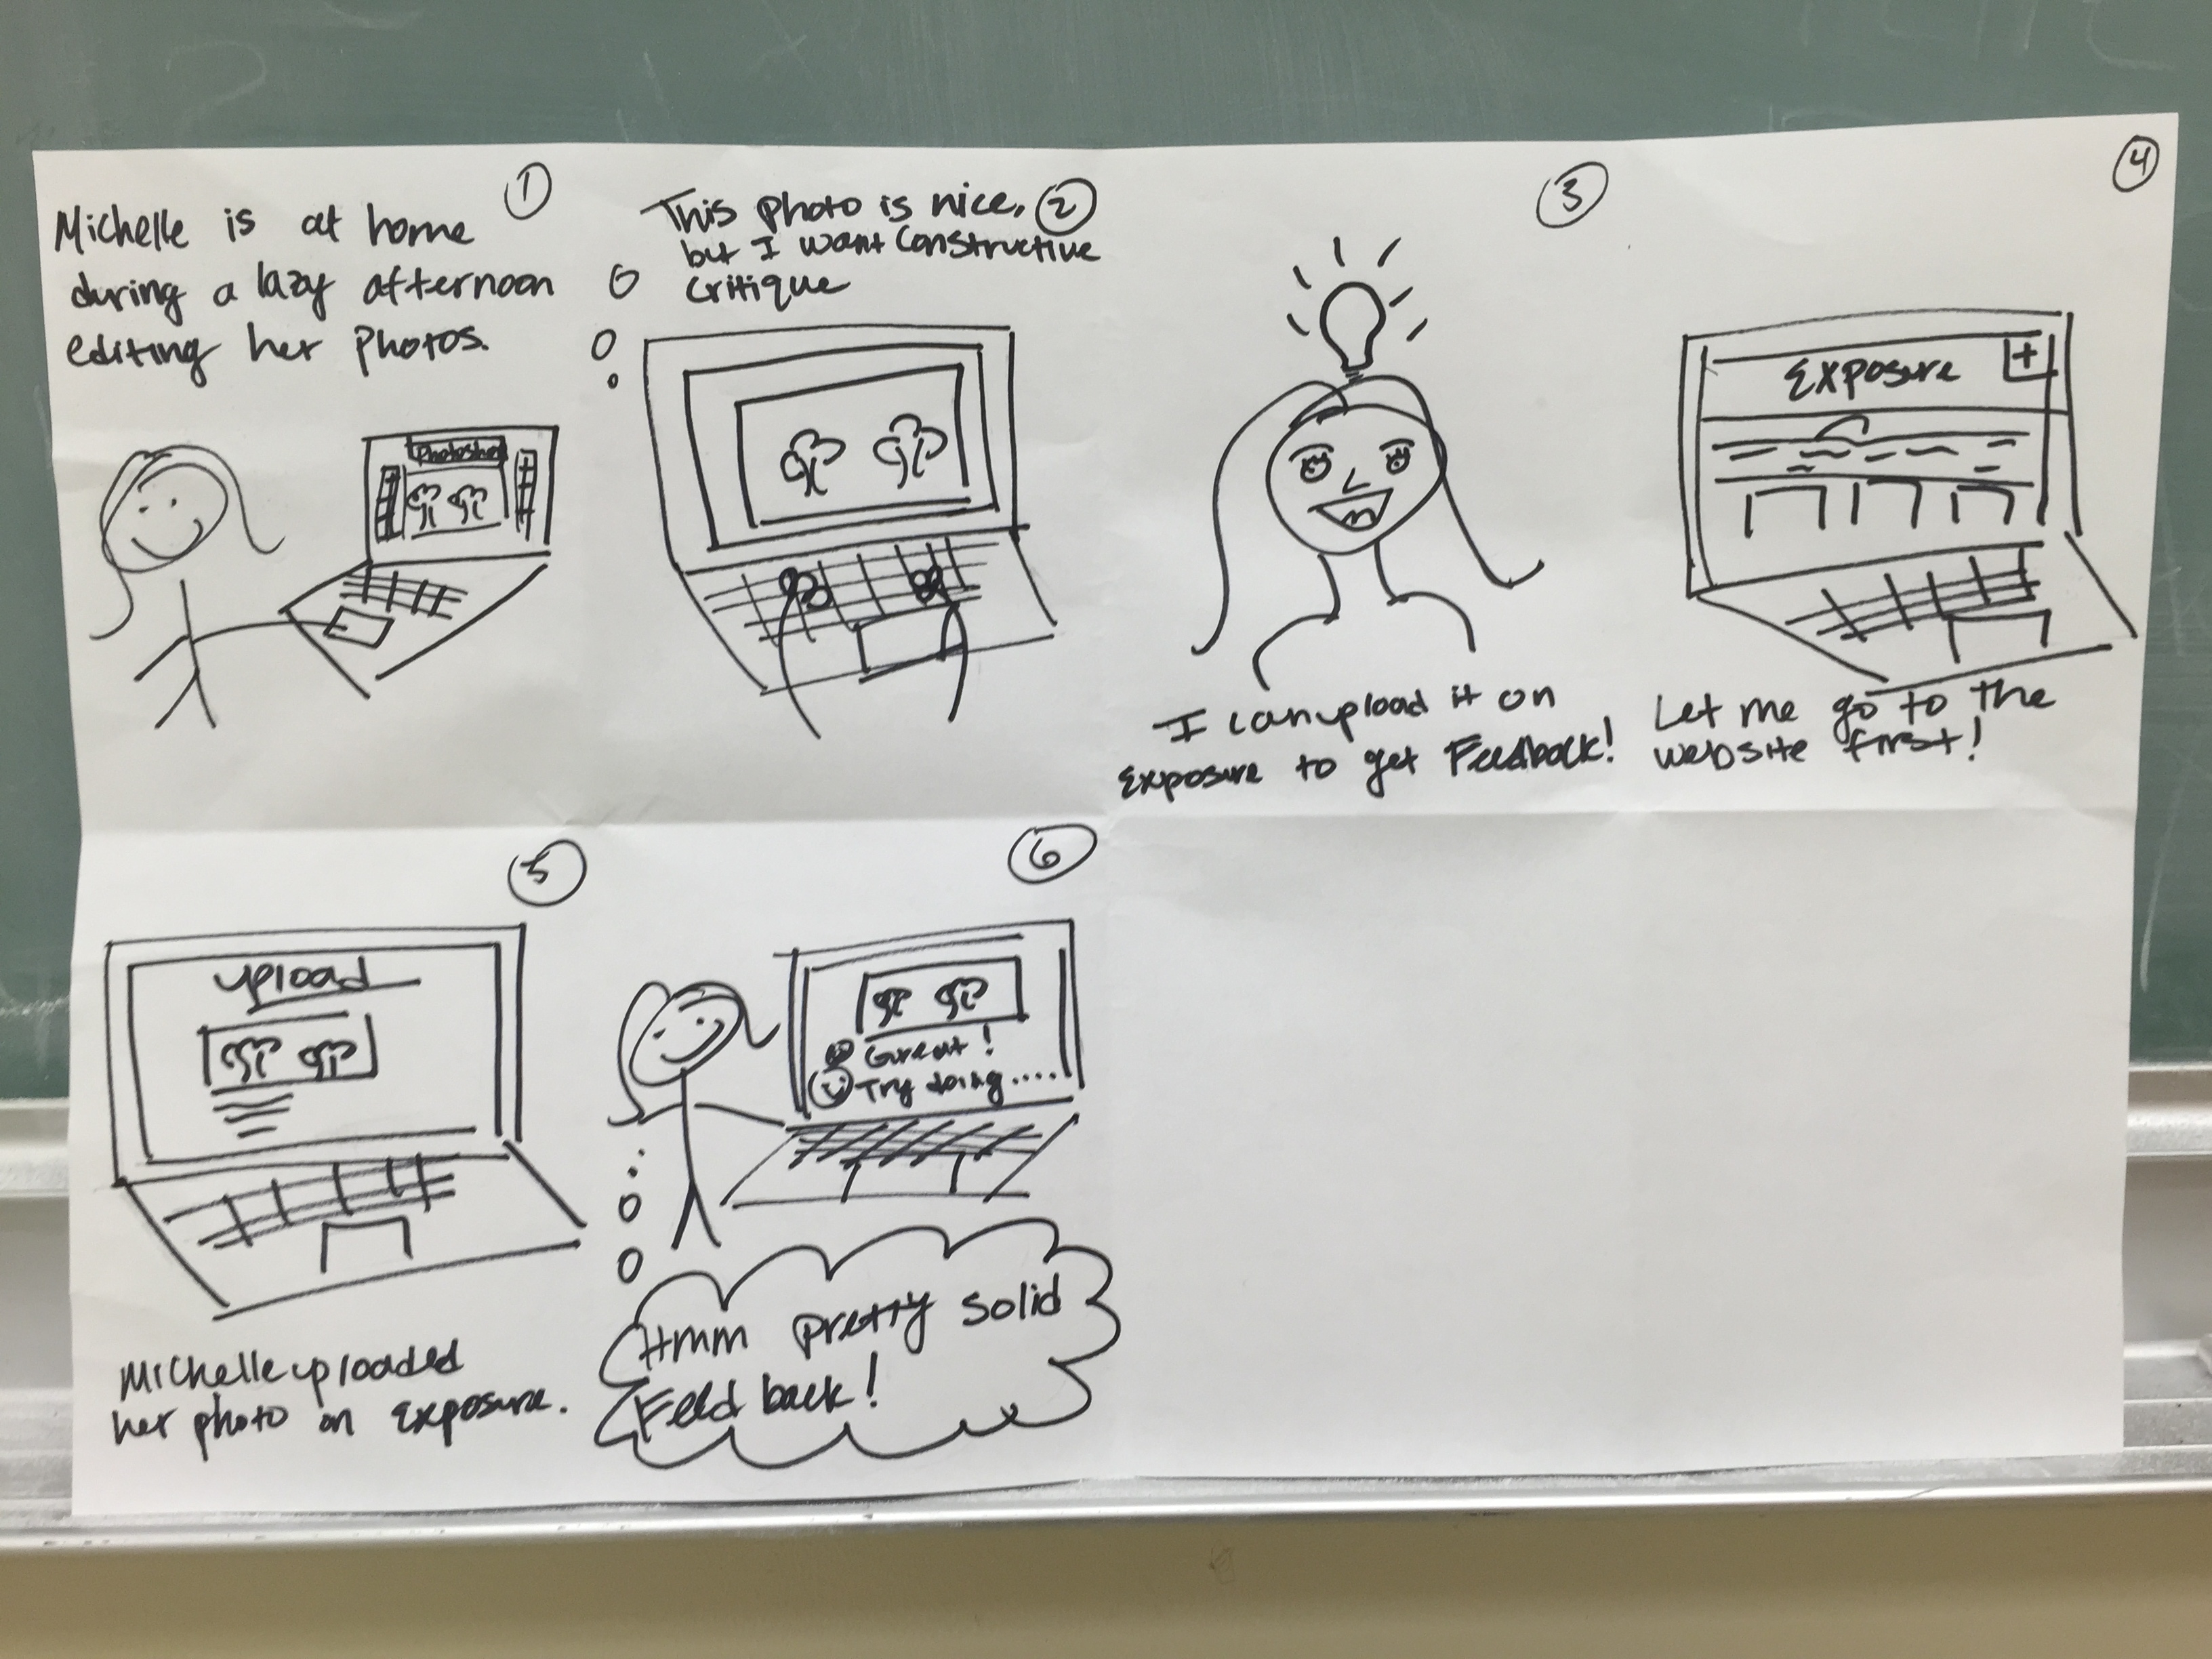 1
Michelle is at home
during a lazy afternoon
editing her photos.
Photoshop
2
This photo is nice,
but I want constructive
critique
3
I can upload it on
Exposure to get Feedback!
4
Exposure +
Let me go to the
website first!
5
upload
Michelle uploaded
her photo on Exposure.
6
Great!
Try doing....
Hmm pretty solid
Feed back!